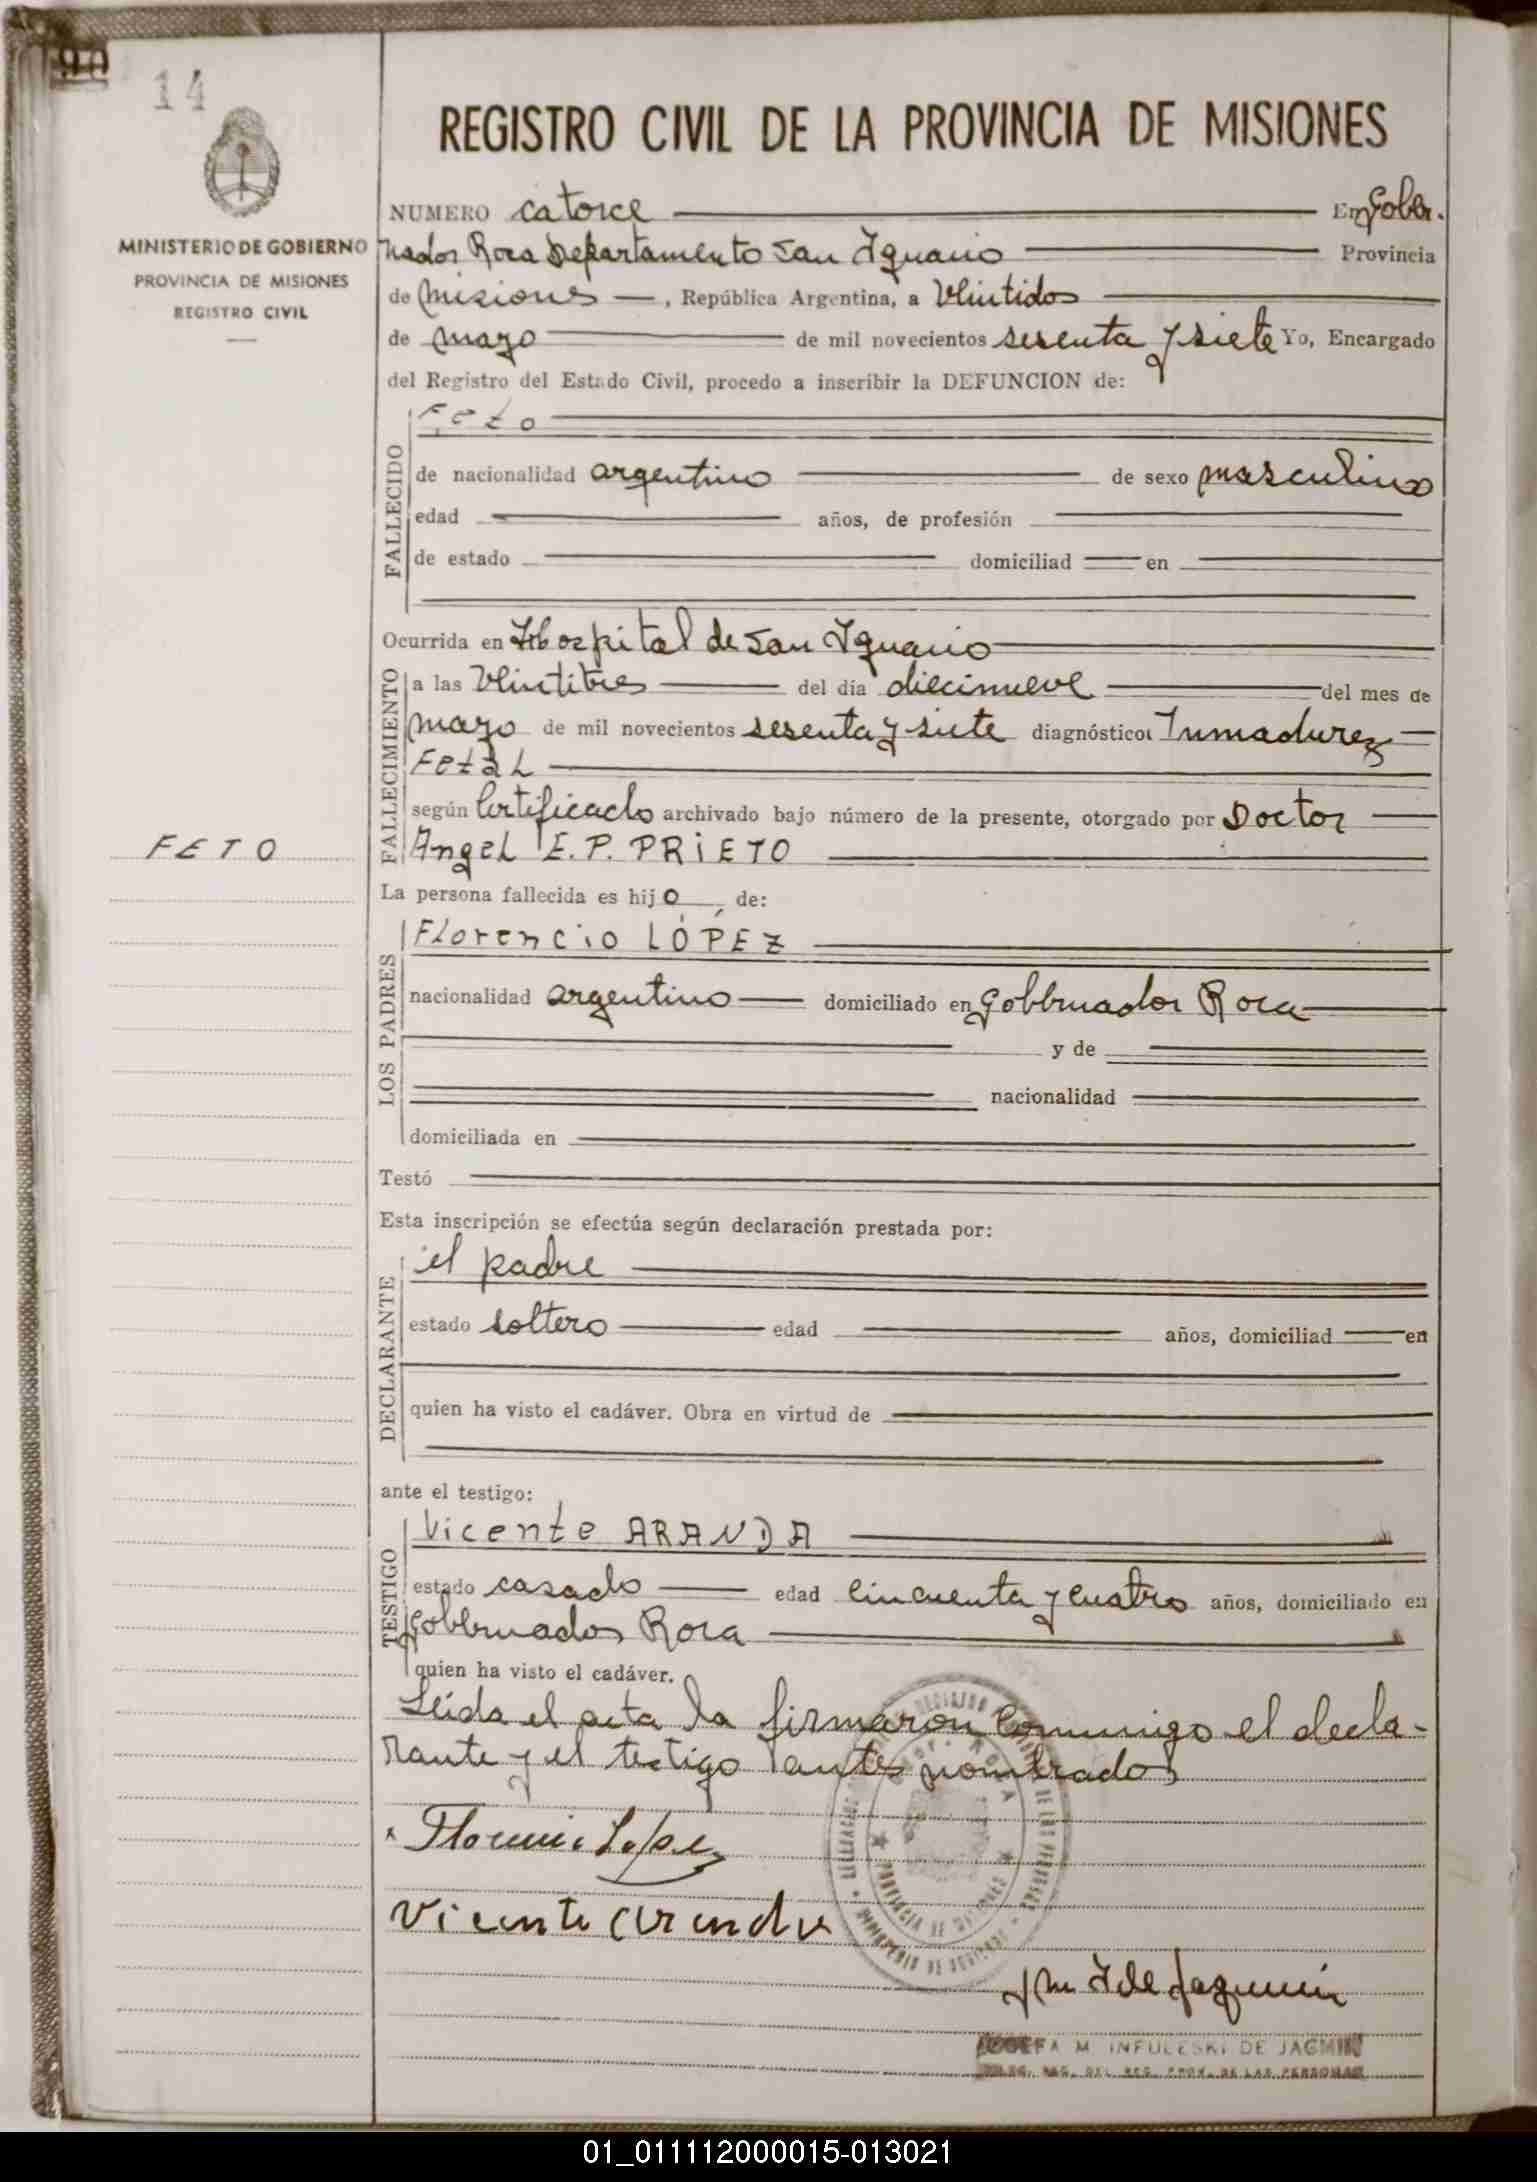 90
14
REGISTRO CIVIL DE LA PROVINCIA DE MISIONES
MINISTERIO DE GOBIERNO
PROVINCIA DE MISIONES
REGISTRO CIVIL
NUMERO catorce En Gober-
nador Roca Departamento San Ignacio Provincia
de Misiones, República Argentina, a Veintidos
de mayo de mil novecientos sesenta y siete Yo, Encargado
del Registro del Estado Civil, procedo a inscribir la DEFUNCION de:
FALLECIDO
Feto
de nacionalidad argentino de sexo masculino
edad años, de profesión
de estado domiciliad en
Ocurrida en Hospital de San Ignacio
FALLECIMIENTO
a las Veintitres del día diecinueve del mes de
mayo de mil novecientos sesenta y siete diagnóstico: Inmadurez
Fetal
según Certificado archivado bajo número de la presente, otorgado por Doctor
Angel E. P. PRIETO
FETO
La persona fallecida es hijo de:
LOS PADRES
Florencio LÓPEZ
nacionalidad argentino domiciliado en Gobernador Roca
y de
nacionalidad
domiciliada en
Testó
Esta inscripción se efectúa según declaración prestada por:
DECLARANTE
el padre
estado soltero edad años, domiciliad en
quien ha visto el cadáver. Obra en virtud de
ante el testigo:
TESTIGO
Vicente ARANDA
estado casado edad cincuenta y cuatro años, domiciliado en
Gobernador Roca
quien ha visto el cadáver.
Leída el acta la firmaron conmigo el decla-
rante y el testigo antes nombrados
Florencio Lopez
Vicente Aranda
PROVINCIA DE MISIONES
JOSEFA M. INFULESKI DE JACMIN
DEL REG. PROV. DE LAS PERSONAS
01_011112000015-013021